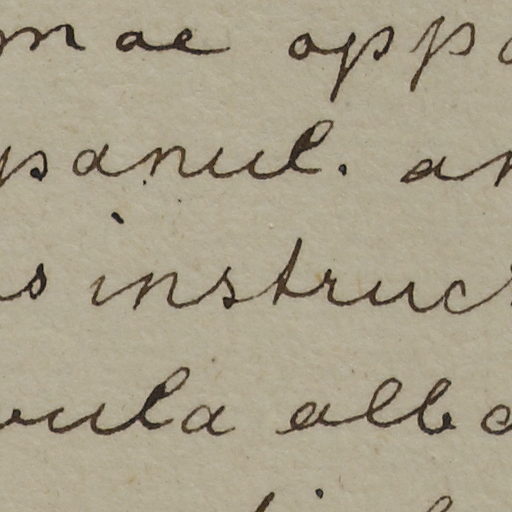 mae oppo
panul. an
s instruc
vula alba